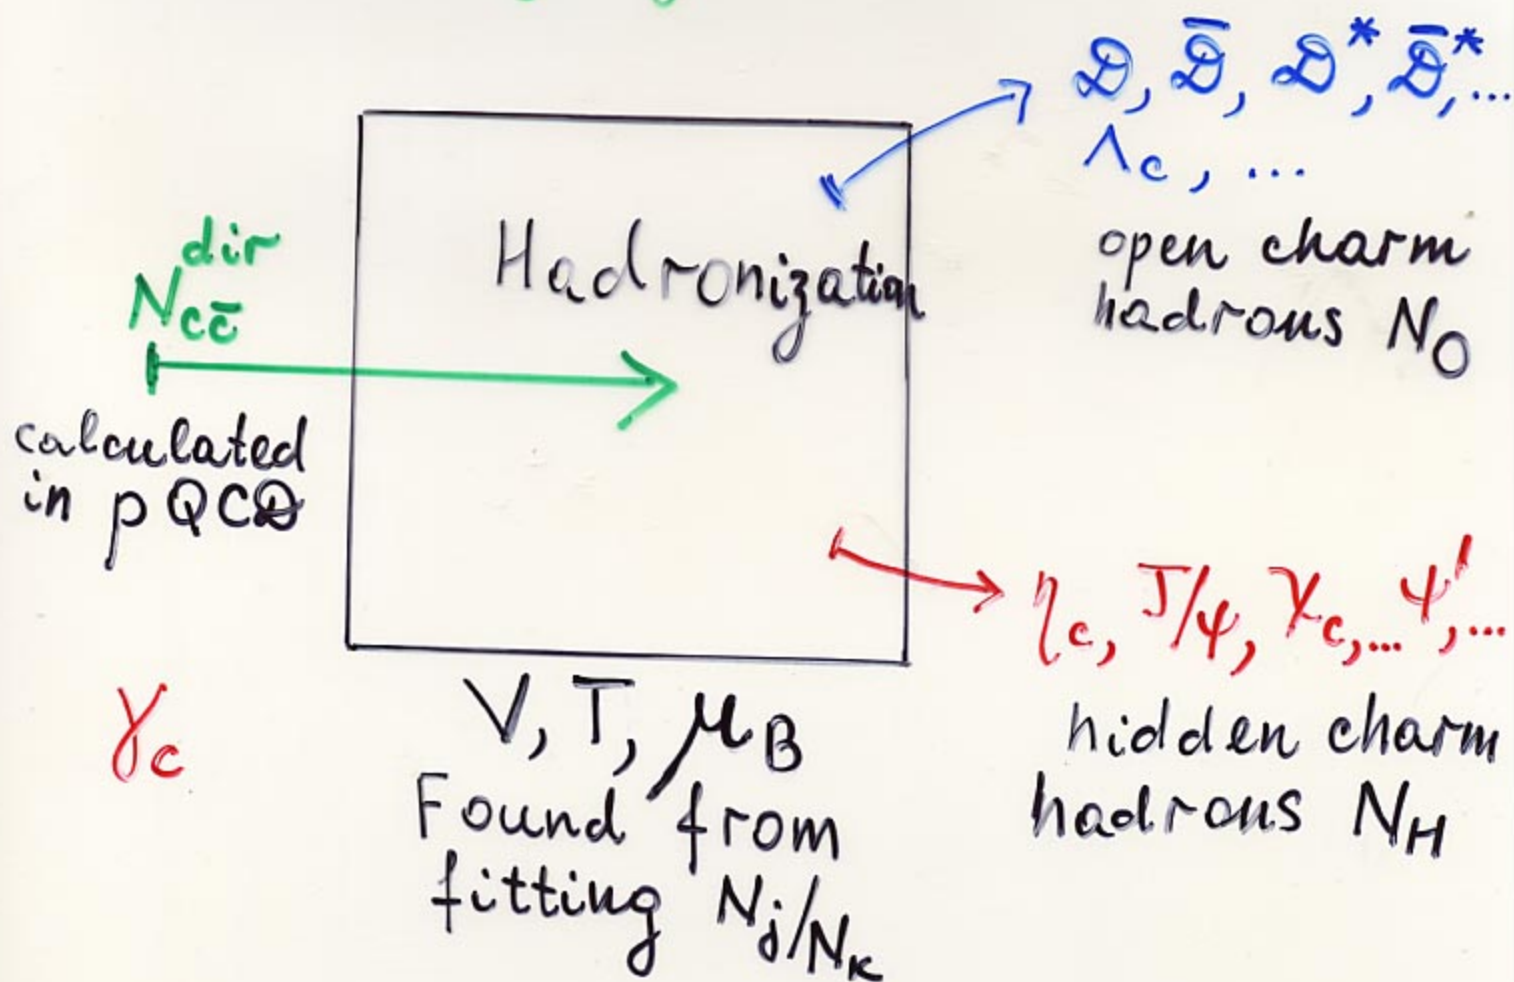 D, D̄, D*, D̄*, ...
Λc, ...
open charm
hadrons N_O
Hadronization
N_{cc̄}^{dir}
calculated
in pQCD
η_c, J/ψ, χ_c, ... ψ', ...
hidden charm
hadrons N_H
γ_c
V, T, μ_B
Found from
fitting N_j/N_k